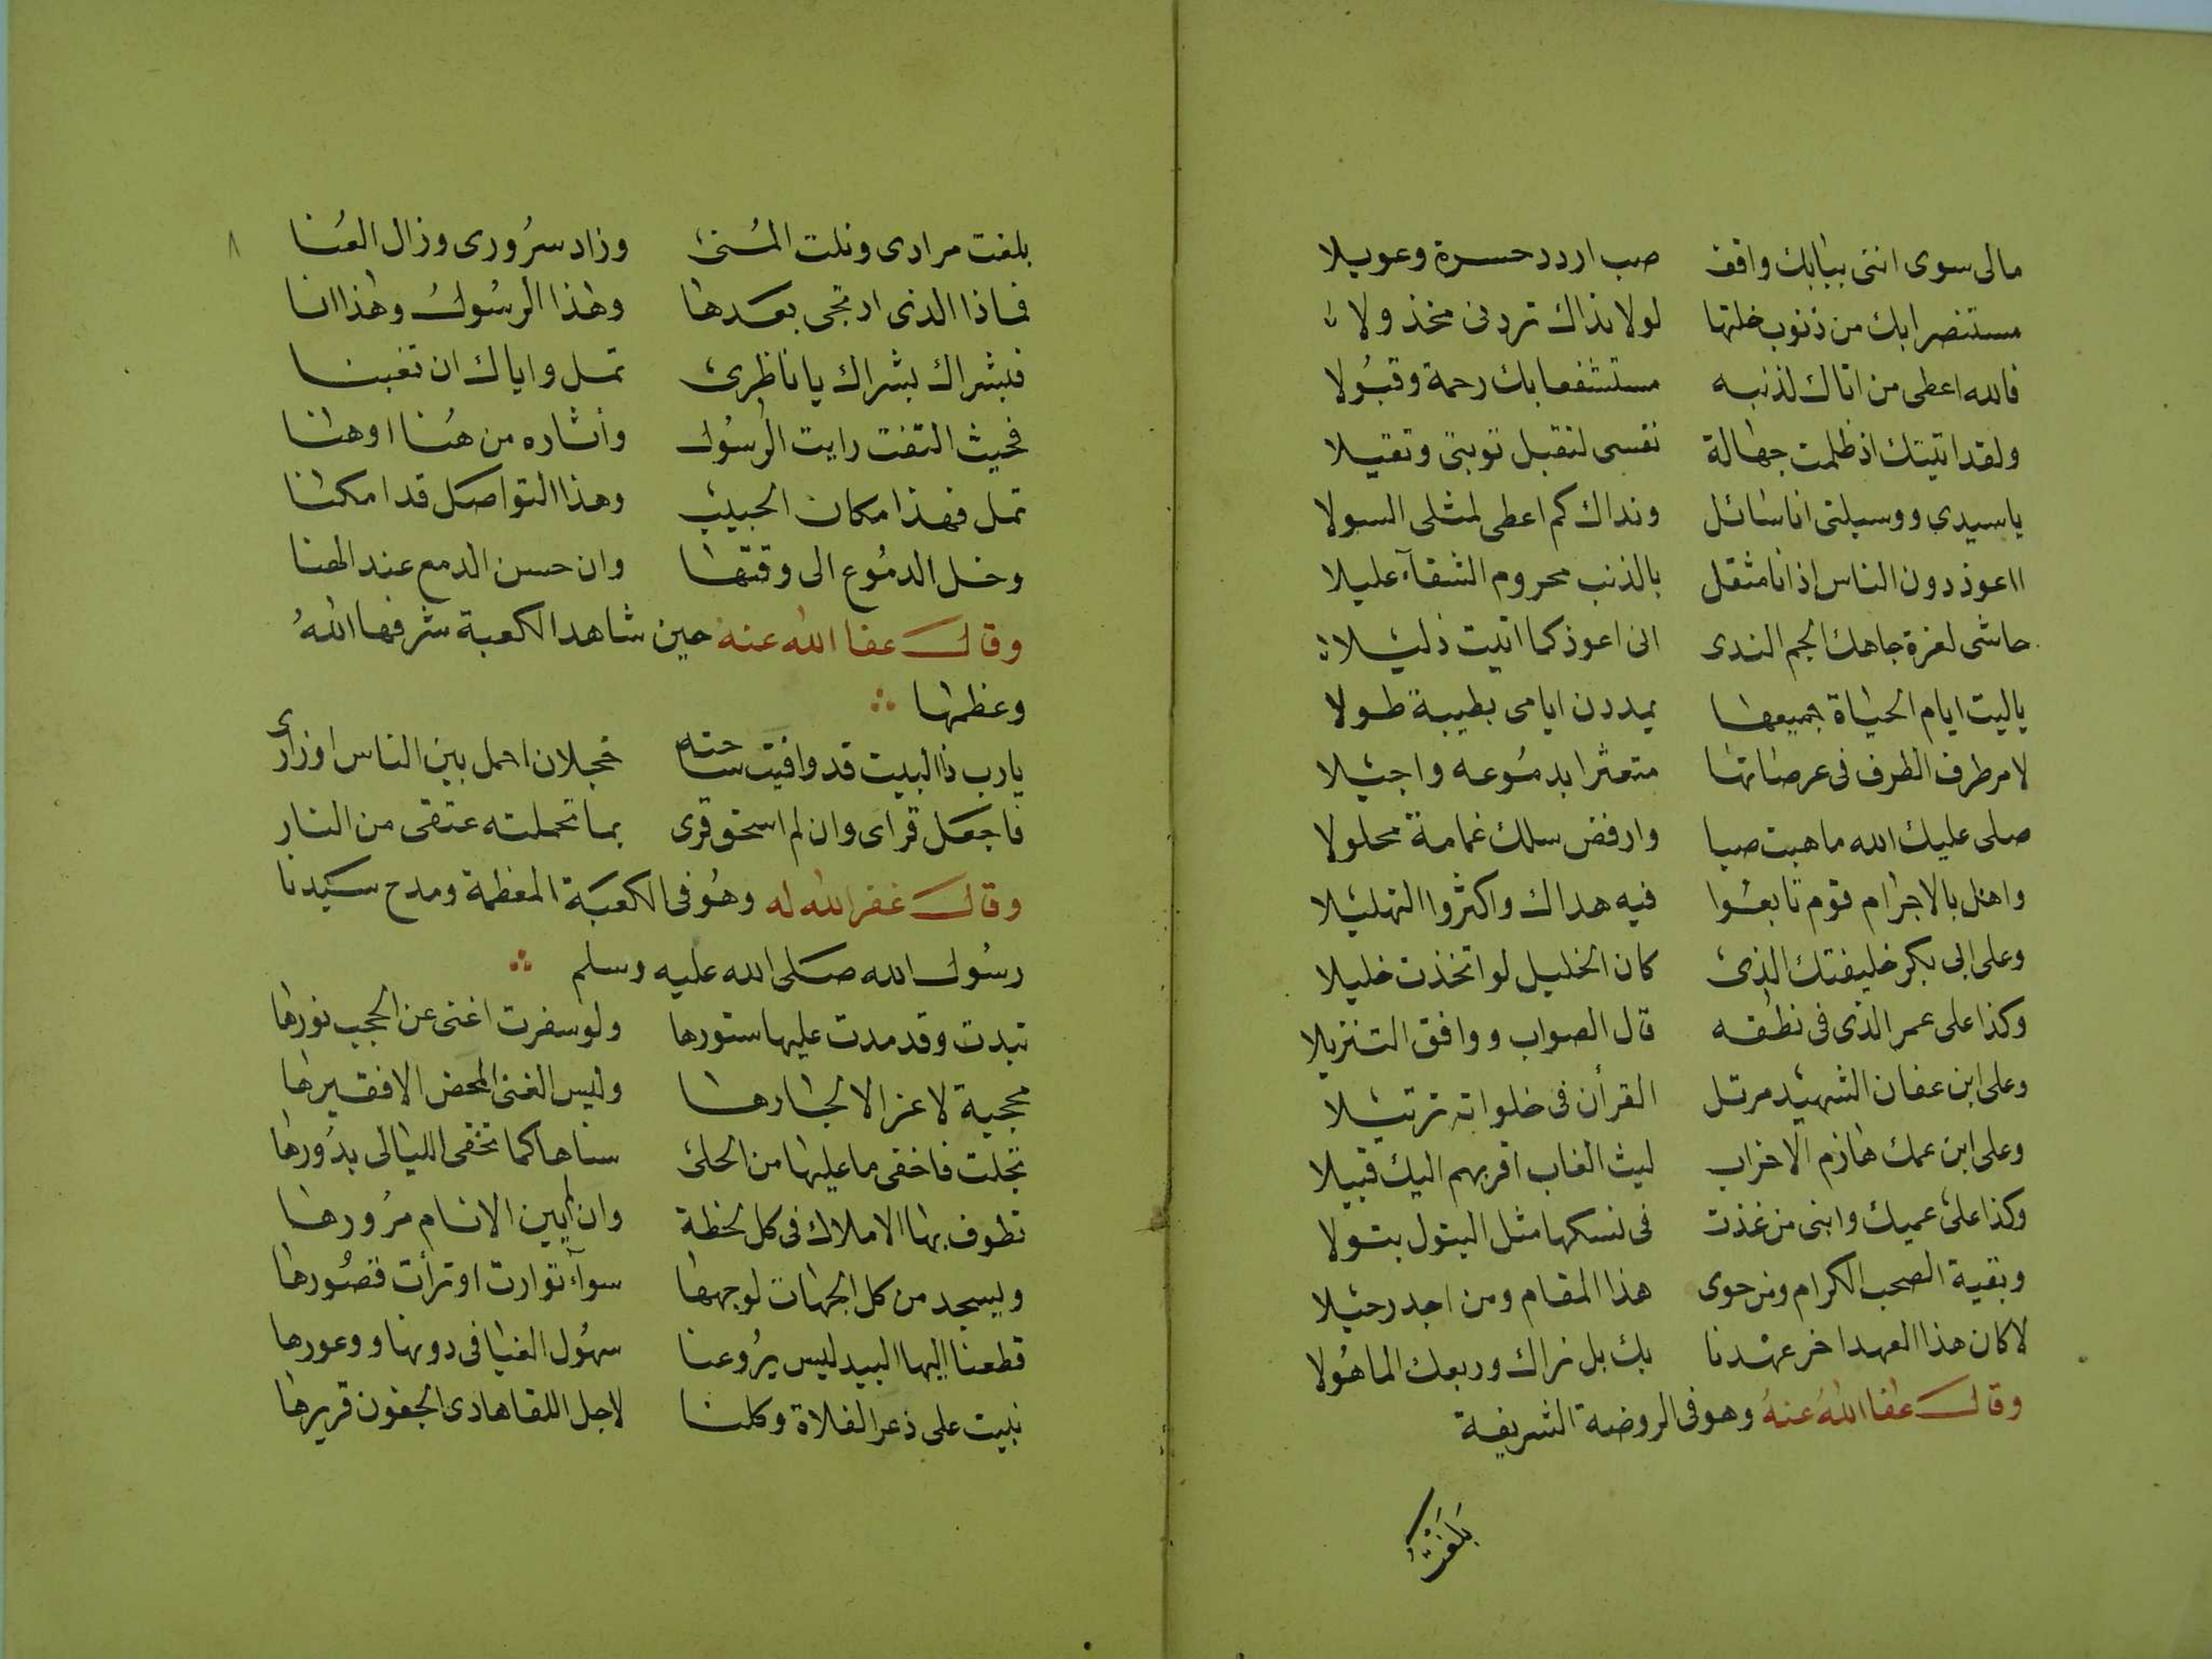 مالى سوى اننى ببابك واقف صب اردد حسرة وعويلا
مستنصرا بك من ذنوب خلتها لولا نداك تردنى مخذولا
فالله اعطى من اتاك لذنبه مستشفعا بك رحمة وقبولا
ولقد اتيتك اذ ظلمت جهالة نفسى لتقبل توبتى وتقيلا
يا سيدى ووسيلتى انا سائل ونداك كم اعطى لمثلى السولا
ااعوذ دون الناس اذ انا مثقل بالذنب محروم الشفآء عليلا
حاشى لعزة جاهك الجم الندى انى اعوذ كما اتيت ذليلا
ياليت ايام الحياة جميعها يمددن ايامى بطيبة طولا
لامر طرف الطرف فى عرصاتها متعثرا بدموعه واجيلا
صلى عليك الله ما هبت صبا وارفض سلك غمامة محلولا
واهل بالاجرام قوم تابعوا فيه هداك واكثروا التهليلا
وعلى ابى بكر خليفتك الذى كان الخليل لو اتخذت خليلا
وكذا على عمر الذى فى نطقه قال الصواب ووافق التنزيلا
وعلى ابن عفان الشهيد مرتل القرأن فى خلواته ترتيلا
وعلى ابن عمك هازم الاحزاب ليث الغاب اقربهم اليك قبيلا
وكذا على عميك وابنى من غذت فى نسكها مثل البتول بتولا
وبقية الصحب الكرام ومن حوى هذا المقام ومن اجد رحيلا
لا كان هذا العهد اخر عهدنا بك بل نراك وربعك الماهولا
وقال عفا الله عنه وهو فى الروضة الشريفة
بلغت
٨
بلغت مرادى ونلت المنى وزاد سرورى وزال العنا
فماذا الذى ارتجى بعدها وهذا الرسول وهذا انا
فبشراك بشراك يا ناظرى تمل واياك ان تغبنا
فحيث التفت رايت الرسول واثاره من هنا او هنا
تمل فهذا مكان الحبيب وهذا التواصل قد امكنا
وخل الدموع الى وقتها وان حسن الدمع عند الهنا
وقال عفا الله عنه حين شاهد الكعبة شرفها الله
وعظمها
يارب ذا البيت قد وافيت ساحته خجلان احمل بين الناس اوزارى
فاجعل قراى وان لم استحق قرى بما تحملته عتقى من النار
وقال غفر الله له وهو فى الكعبة المعظمة ومدح سيدنا
رسول الله صلى الله عليه وسلم
تبدت وقد مدت عليها ستورها ولو سفرت اغنى عن الحجب نورها
محجبة لا عز الا لجارها وليس الغنى المحض الا فقيرها
تجلت فاخفى ما عليها من الحلى سناها كما تخفى الليالى بدورها
تطوف بها الاملاك فى كل لحظة وان أيين الانام مرورها
ويسجد من كل الجهات لوجهها سوآء توارت او ترأت قصورها
قطعنا اليها البيد ليس يروعنا سهول الفيافى دونها ووعورها
نبيت على ذعر الفلاة وكلنا لاجل اللقا هادى الجفون قريرها